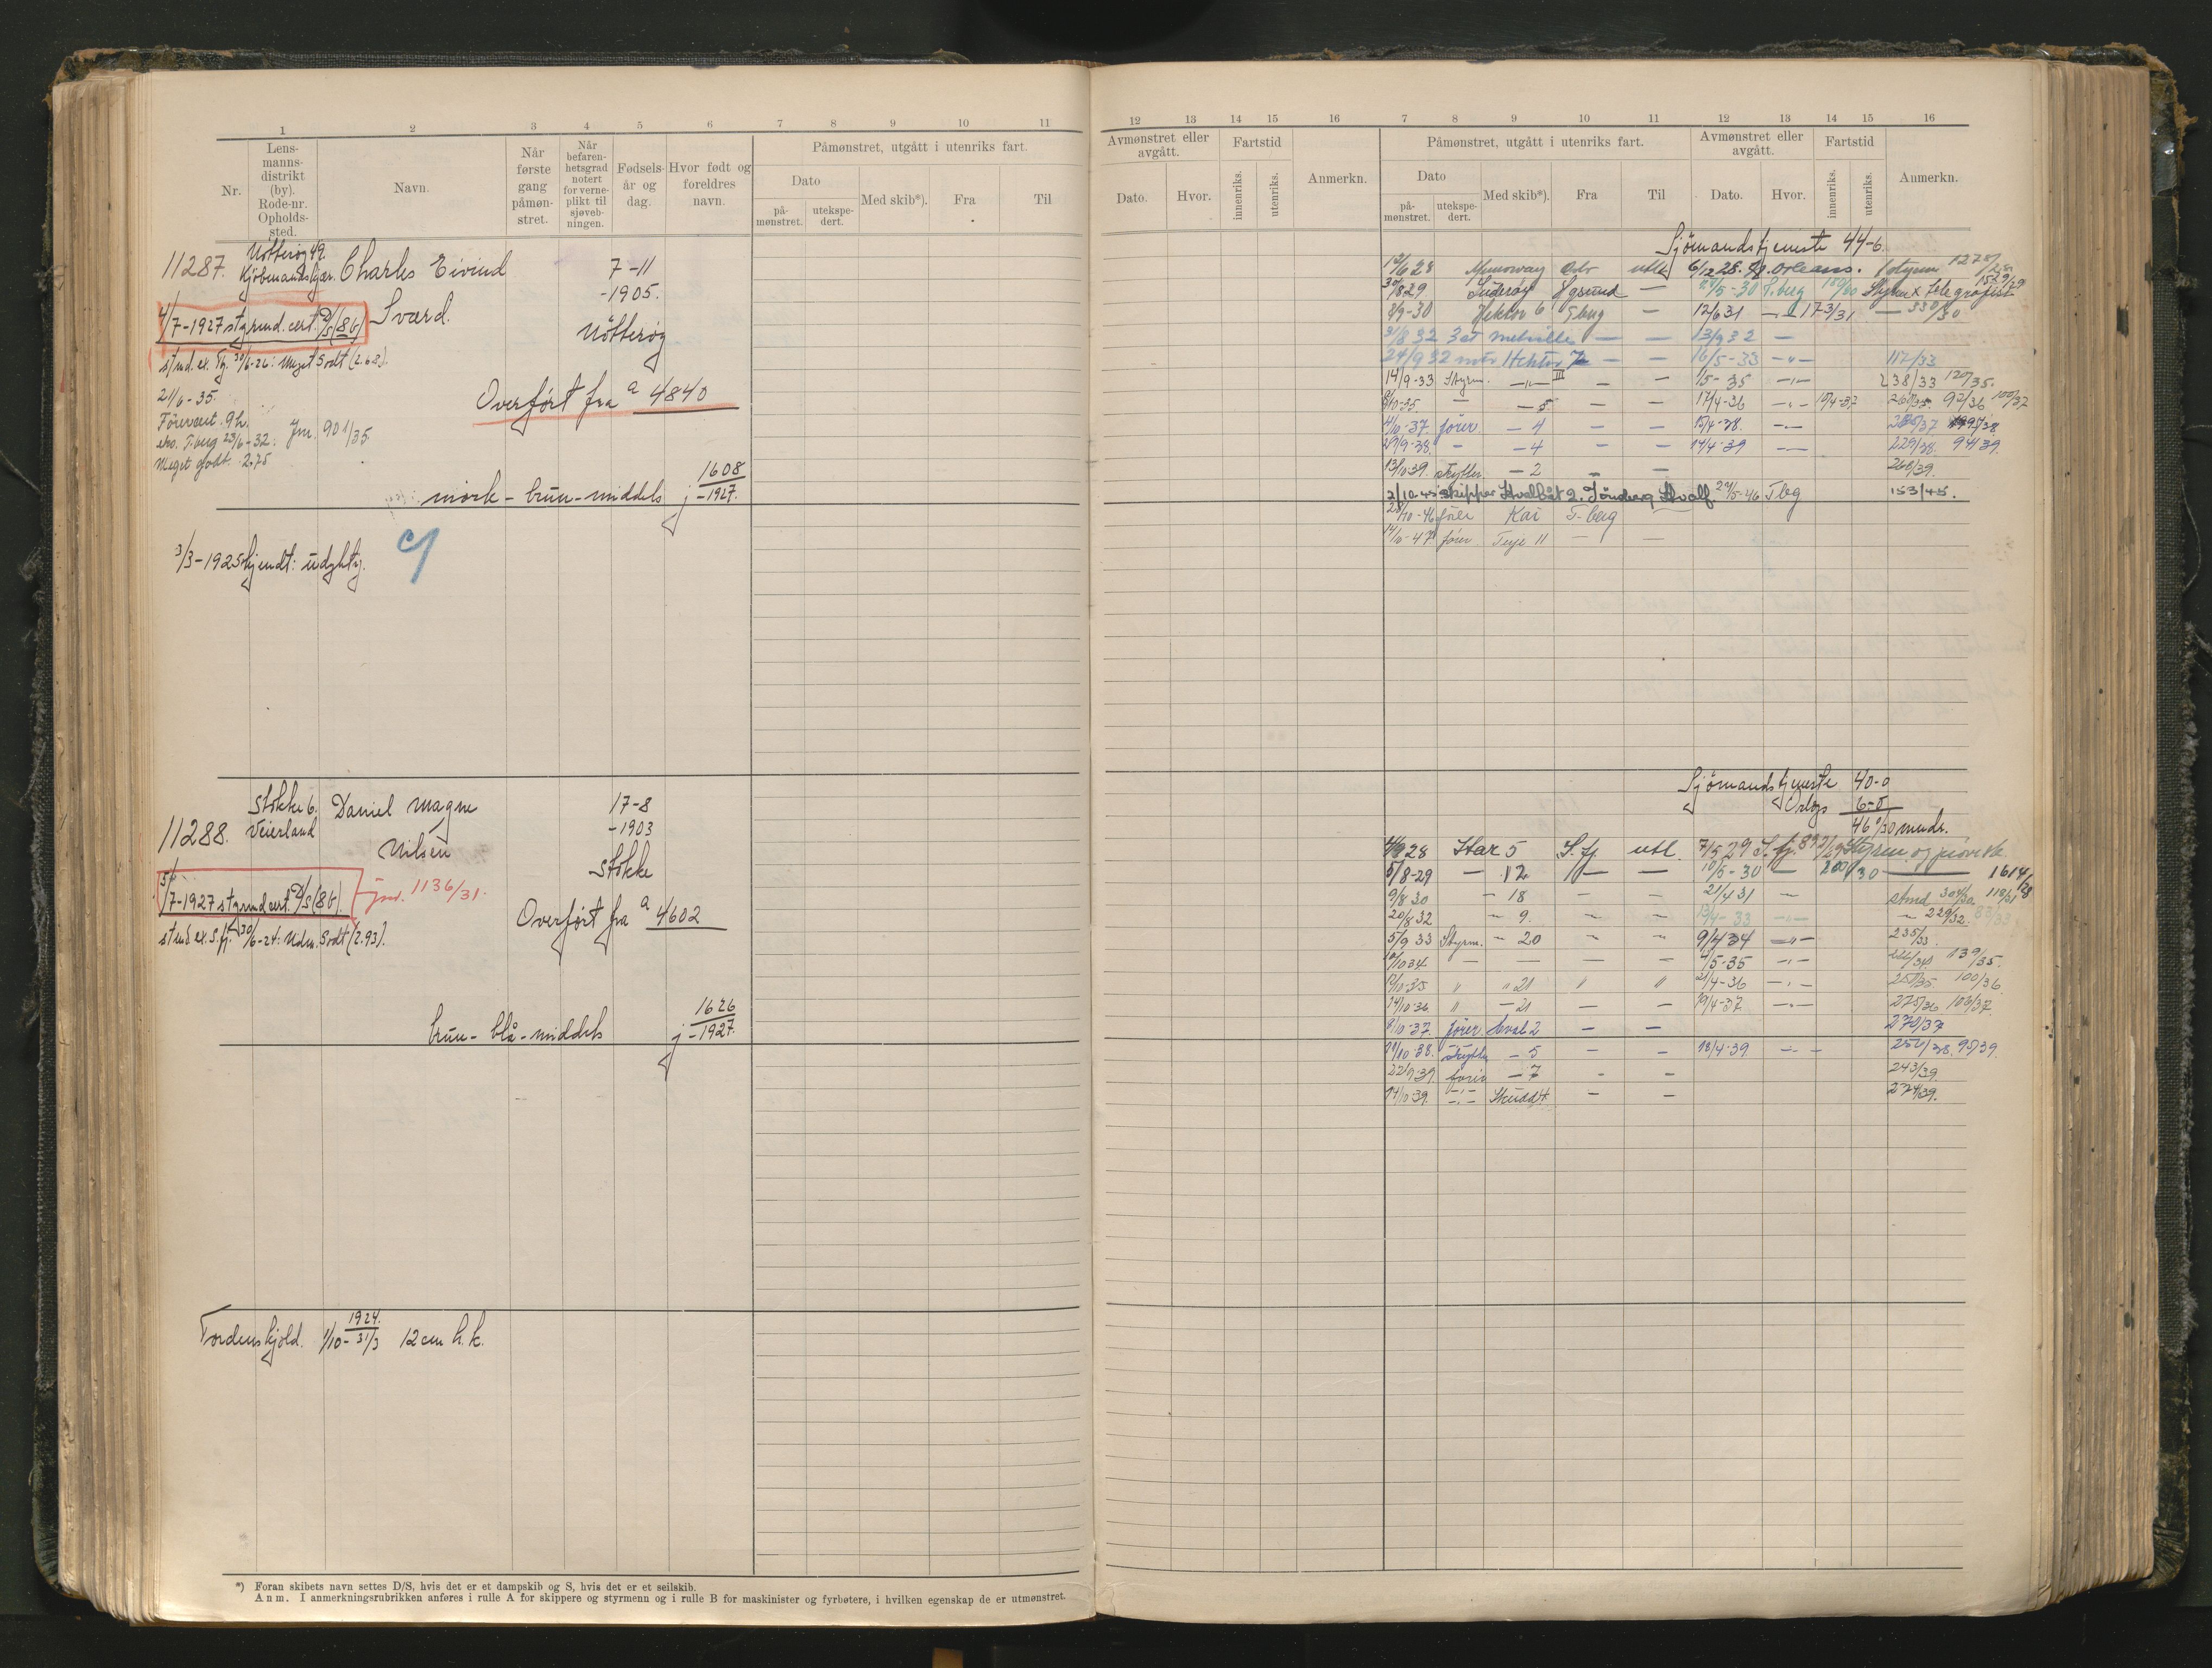 1 2 3 4 5 6 7 8 9 10 11
Nr.
Lens-
manns-
distrikt
(by).
Rode-nr.
Opholds-
sted.
Navn.
Når
første
gang
påmøn-
stret.
Når
befaren-
hetsgrad
notert
for verne-
plikt til
sjøveb-
ningen.
Fødsels-
år og
dag.
Hvor født og
foreldres
navn.
Påmønstret, utgått i utenriks fart.
Dato
på-
mønstret.
utekspe-
dert.
Med skib*).
Fra
Til
11287.
Nøtterøy 49.
Kjøbmandskjær.
Charles Eivind
Sværd.
7-11
-1905.
Nøtterøy
4/7-1927 styrmd. cert. D/S (86)
st md. ex. Tg. 30/6-26: Meget Godt (2.68).
21/6-35.
Førercert. 9h.
eks. T.berg 23/6-32: Jnr. 901/35.
Meget godt. 2,75
Overført fra a 4840
mörk - brun - middels j 1608
-1927.
3/3-1925 kjendt: udyktig.
11288.
Stokke 6.
Veierland
Daniel Magne
Nilsen
17-8
-1903
Stokke
5/7-1927 styrmd cert. D/S (86).
Jnr. 1136/31.
st md. ex. S.fj. 30/6-24: Udm. Godt (2.93).
Overført fra a 4602
brun - blå - middels j 1626
-1927.
Tordenskjold. 1/10 - 31/3 1924. 12 cm h.k.
*) Foran skibets navn settes D/S, hvis det er et dampskib og S, hvis det er et seilskib.
Anm. I anmerkningsrubrikken anføres i rulle A for skippere og styrmenn og i rulle B for maskinister og fyrbøtere, i hvilken egenskap de er utmønstret.
12 13 14 15 16 7 8 9 10 11 12 13 14 15 16
Avmønstret eller
avgått.
Fartstid
Anmerkn.
Dato.
Hvor.
innenriks.
utenriks.
Påmønstret, utgått i utenriks fart.
Dato
på-
mønstret.
utekspe-
dert.
Med skib*).
Fra
Til
Avmønstret eller
avgått.
Dato.
Hvor.
Fartstid
innenriks.
utenriks.
Anmerkn.
Sjømandstjeneste 44-6.
Oslo utl. 6/12 28. N. Orleans.
30/8 29 Suderøy — 24/5-30 T.berg Styrm x telegrafist
8/9-30 Hektor 6 T.berg — 12/6 31 — 173/31 — 330/30
31/8 32 3 st Melville — — 13/9 32 —
24/9 32 Hektor 7 — — 16/5-33 —"— 112/33
14/9-33 Styrm. —"— III — — 1/5-35 —"— 238/33 120/35.
— — 5 — — 17/4-36 —"— 92/36 100/37
4/10-37. fører — 4 — — 15/4-38. —"—
29/9-38. — — 4 — — 14/4-39 —"— 229/38. 94/39.
13/10 39. Skytter — 2 — — 260/39.
2/10-45 Skipper Hvalbåt 2. Tønsberg Hvalf. 24/5-46 T.bg 153/45.
28/10-46 fører Kai T-berg
14/10-47. fører. Terje 11 — —
Sjømandstjeneste 40-0
Orlogs 6-0
46 0/30 mndr.
4/9 28 Star 5 S.fj. utl. 7/5 29 S.fj.
5/8-29 — 12 — — 10/5-30 — 200/30 — 1614/28
9/8 30 — 18 — — 21/4 31 — 118/31
20/8 32 — 9. — — 13/4-33 —"— — 229/32.
5/9 33 Styrm. — 20 — — 9/4 34 —"— 235/33.
10/10 34. — — — — 4/5-35 —"— 139/35.
12/10-35 " " 21 " " 21/4-36 —"— 100/36
14/10-36 " — 21 — — 19/4-37 —"— 275/36 103/37.
8/10-37. fører. Hval 2 — — 270/37
11/10-38. Skytter — 5 — — 18/4-39 —"— 252/38. 95/39.
22/9-39. fører — 7 — — 243/39.
14/10 39. —"— Skudd 4 — — 274/39.